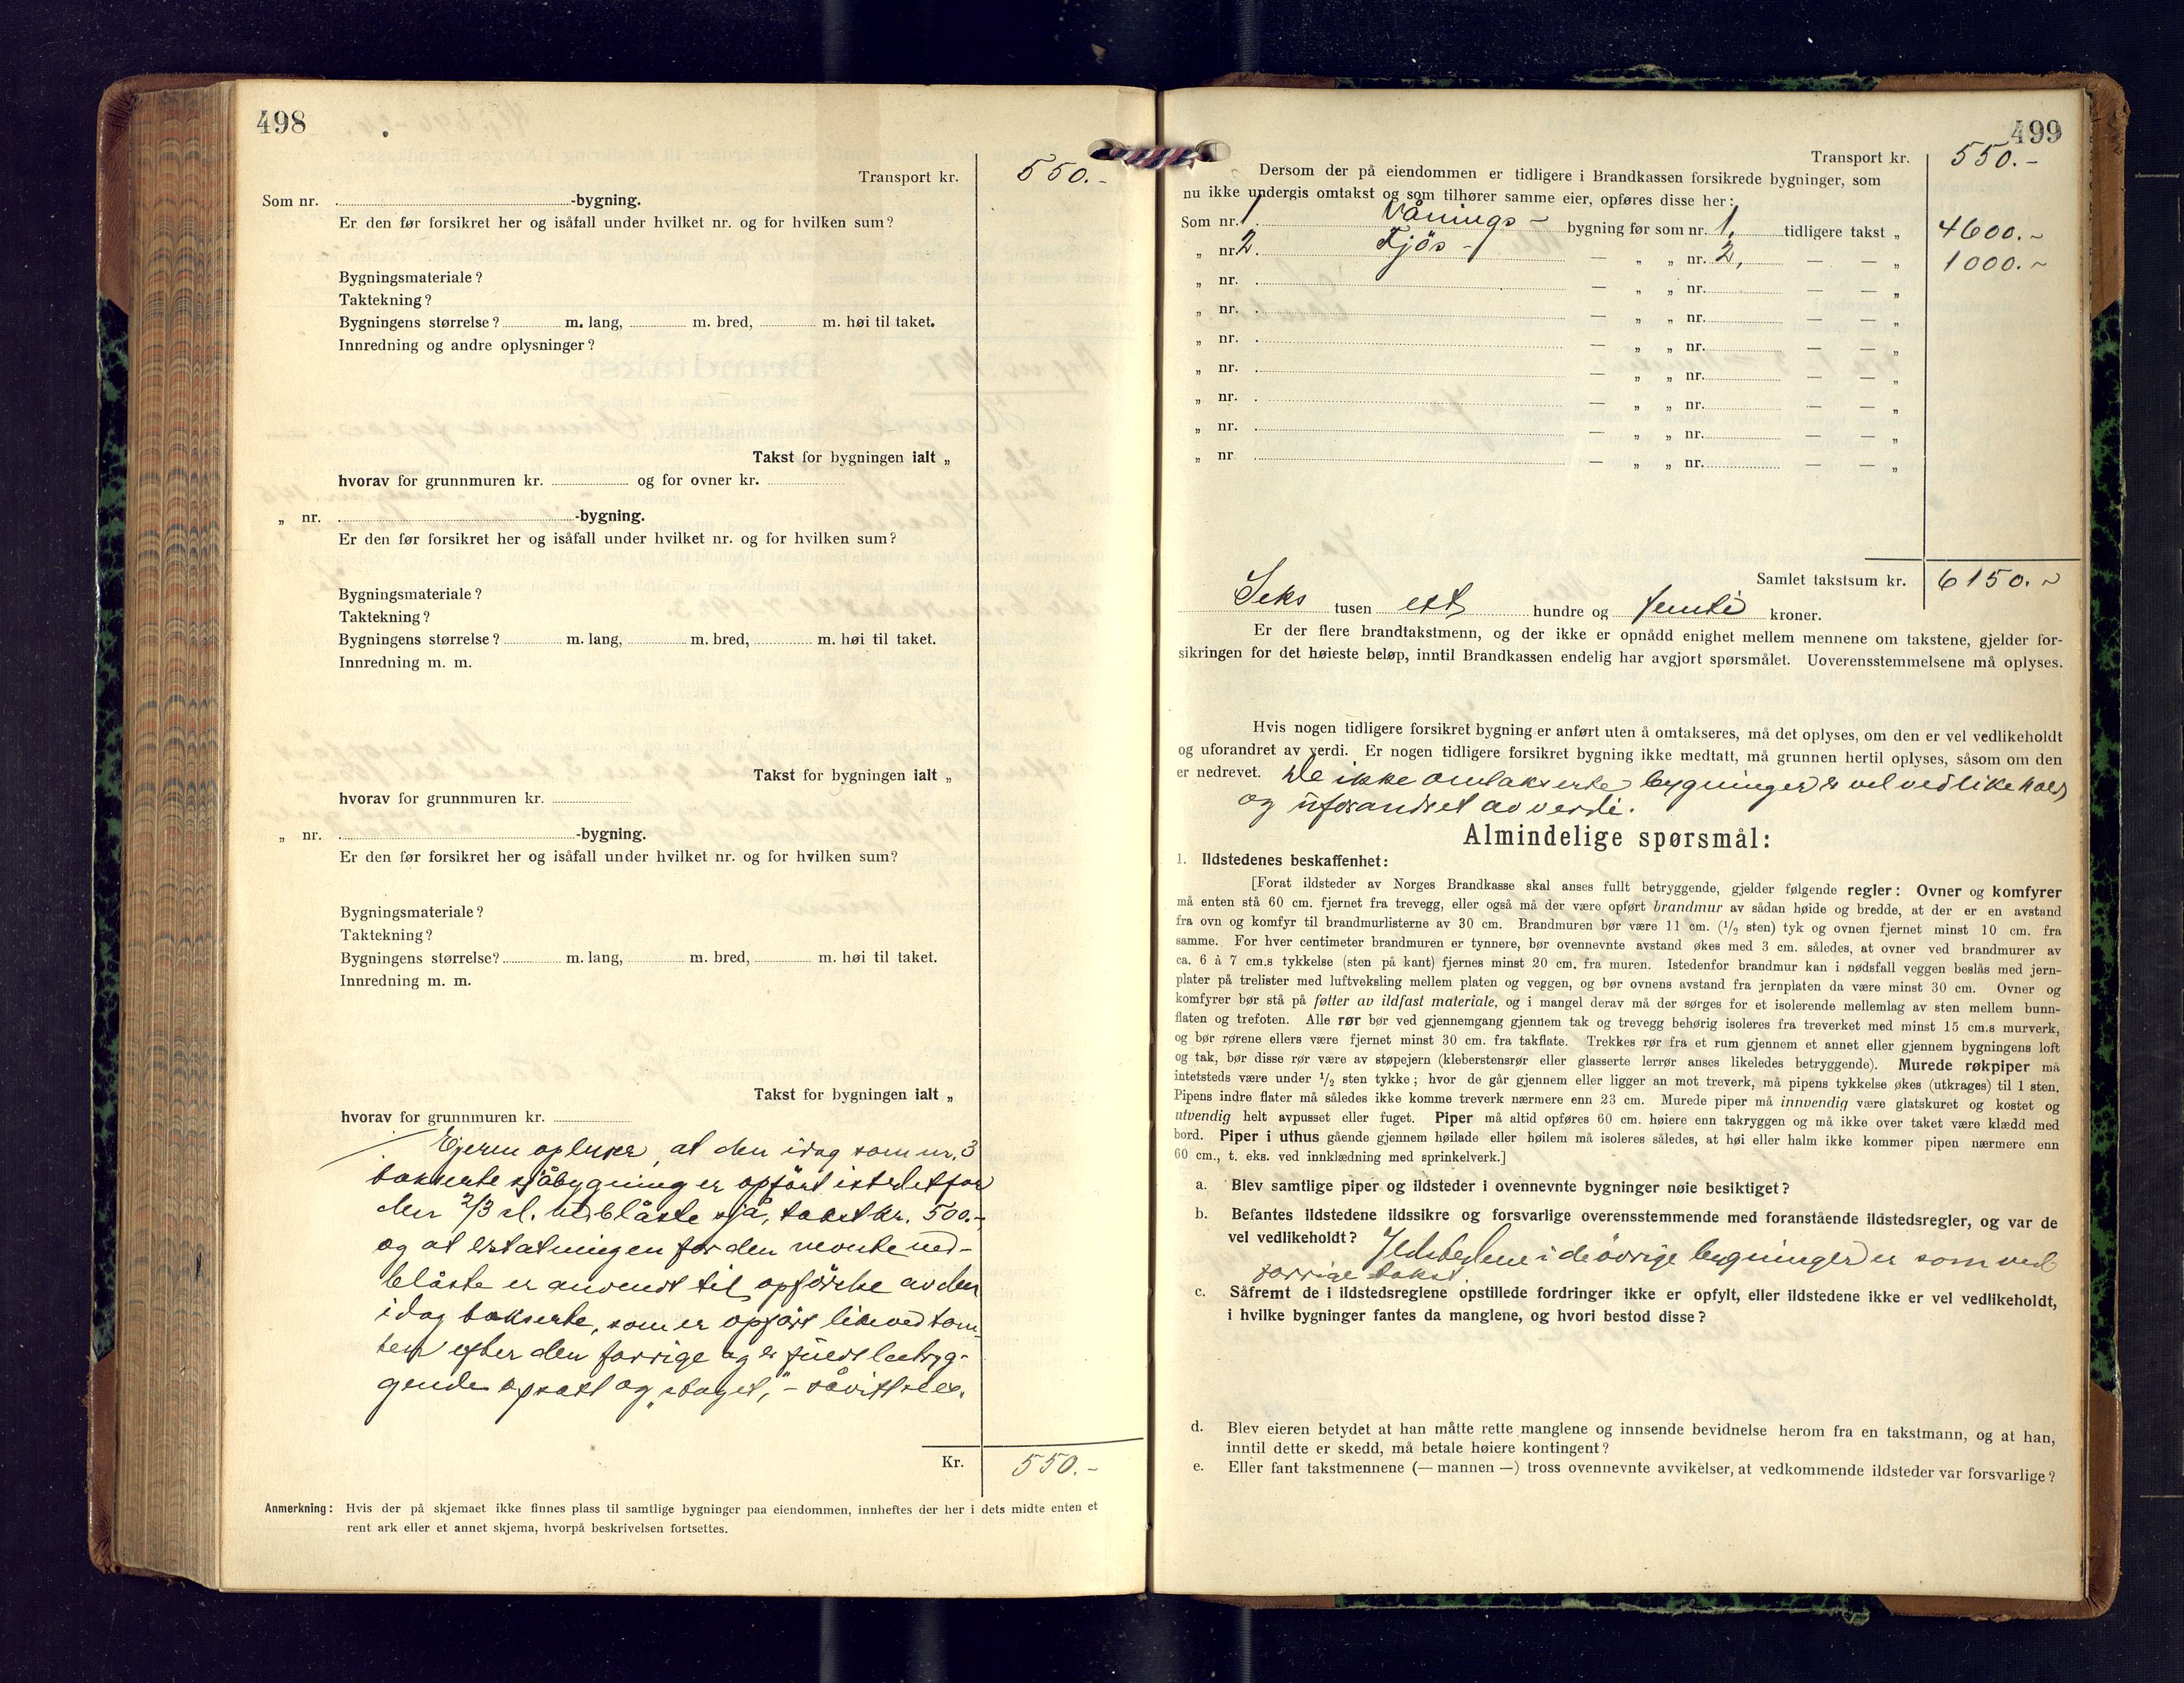 498
Transport kr. 550.-
Som nr. -bygning.
Er den før forsikret her og isåfall under hvilket nr. og for hvilken sum?
Bygningsmateriale?
Taktekning?
Bygningens størrelse? m. lang, m. bred, m. høi til taket.
Innredning og andre oplysninger?
Takst for bygningen ialt „
hvorav for grunnmuren kr. og for ovner kr.
„ nr. -bygning.
Er den før forsikret her og isåfall under hvilket nr. og for hvilken sum?
Bygningsmateriale?
Taktekning?
Bygningens størrelse? m. lang, m. bred, m. høi til taket.
Innredning m. m.
Takst for bygningen ialt „
hvorav for grunnmuren kr.
„ nr. -bygning.
Er den før forsikret her og isåfall under hvilket nr. og for hvilken sum?
Bygningsmateriale?
Taktekning?
Bygningens størrelse? m. lang, m. bred, m. høi til taket.
Innredning m. m.
Takst for bygningen ialt „
hvorav for grunnmuren kr.
Eieren oplyser, at den idag som nr. 3
takserte sjåbygning er opført istedetfor
den 2/3 d. nedblåste sjå, takst kr. 500.-
og at erstatningen for den nevnte ned-
blåste er anvendt til opførelse av den
idag takserte, som er opført like ved tom-
ten efter den forrige og er fuldt betryg-
gende opsatt og „staget", -
Kr. 550.-
Anmerkning: Hvis der på skjemaet ikke finnes plass til samtlige bygninger paa eiendommen, innheftes der her i dets midte enten et
rent ark eller et annet skjema, hvorpå beskrivelsen fortsettes.
499
Transport kr. 550.-
Dersom der på eiendommen er tidligere i Brandkassen forsikrede bygninger, som
nu ikke undergis omtakst og som tilhører samme eier, opføres disse her:
Som nr. 1 Vånings- bygning før som nr. 1, tidligere takst „ 4600.-
„ nr. 2. Fjøs - — „ „ nr. 2, — — „ 1000.-
„ nr. — „ „ nr. — — „
„ nr. — „ „ nr. — — „
„ nr. — „ „ nr. — — „
„ nr. — „ „ nr. — — „
„ nr. — „ „ nr. — — „
„ nr. — „ „ nr. — — „
„ nr — „ „ nr. — — „
Samlet takstsum kr. 6150.-
Seks tusen ett hundre og femti kroner.
Er der flere brandtakstmenn, og der ikke er opnådd enighet mellem mennene om takstene, gjelder for-
sikringen for det høieste beløp, inntil Brandkassen endelig har avgjort spørsmålet. Uoverensstemmelsene må oplyses.
Hvis nogen tidligere forsikret bygning er anført uten å omtakseres, må det oplyses, om den er vel vedlikeholdt
og uforandret av verdi. Er nogen tidligere forsikret bygning ikke medtatt, må grunnen hertil oplyses, såsom om den
er nedrevet. De ikke omtakserte bygninger er vel vedlikehold
og uforandret av verdi.
Almindelige spørsmål:
1. Ildstedenes beskaffenhet:
[Forat ildsteder av Norges Brandkasse skal anses fullt betryggende, gjelder følgende regler: Ovner og komfyrer
må enten stå 60 cm. fjernet fra trevegg, eller også må der være opført brandmur av sådan høide og bredde, at der er en avstand
fra ovn og komfyr til brandmurlisterne av 30 cm. Brandmuren bør være 11 cm. (1/2 sten) tyk og ovnen fjernet minst 10 cm. fra
samme. For hver centimeter brandmuren er tynnere, bør ovennevnte avstand økes med 3 cm. således, at ovner ved brandmurer av
ca. 6 à 7 cm.s tykkelse (sten på kant) fjernes minst 20 cm. fra muren. Istedenfor brandmur kan i nødsfall veggen beslås med jern-
plater på trelister med luftveksling mellem platen og veggen, og bør ovnens avstand fra jernplaten da være minst 30 cm. Ovner og
komfyrer bør stå på føtter av ildfast materiale, og i mangel derav må der sørges for et isolerende mellemlag av sten mellem bunn-
flaten og trefoten. Alle rør bør ved gjennemgang gjennem tak og trevegg behørig isoleres fra treverket med minst 15 cm.s murverk,
og bør rørene ellers være fjernet minst 30 cm. fra takflate. Trekkes rør fra et rum gjennem et annet eller gjennem bygningens loft
og tak, bør disse rør være av støpejern (kleberstensrør eller glasserte lerrør anses likeledes betryggende). Murede røkpiper må
intetsteds være under 1/2 sten tykke; hvor de går gjennem eller ligger an mot treverk, må pipens tykkelse økes (utkrages) til 1 sten.
Pipens indre flater må således ikke komme treverk nærmere enn 23 cm. Murede piper må innvendig være glatskuret og kostet og
utvendig helt avpusset eller fuget. Piper må altid opføres 60 cm. høiere enn takryggen og må ikke over taket være klædd med
bord. Piper i uthus gående gjennem høilade eller høilem må isoleres således, at høi eller halm ikke kommer pipen nærmere enn
60 cm., t. eks. ved innklædning med sprinkelverk.]
a. Blev samtlige piper og ildsteder i ovennevnte bygninger nøie besiktiget?
b. Befantes ildstedene ildssikre og forsvarlige overensstemmende med foranstående ildstedsregler, og var de
vel vedlikeholdt? Ildstedene i de övrige bygninger er som ved
forrige takst.
c. Såfremt de i ildstedsreglene opstillede fordringer ikke er opfylt, eller ildstedene ikke er vel vedlikeholdt,
i hvilke bygninger fantes da manglene, og hvori bestod disse?
d. Blev eieren betydet at han måtte rette manglene og innsende bevidnelse herom fra en takstmann, og at han,
inntil dette er skedd, må betale høiere kontingent?
e. Eller fant takstmennene (— mannen —) tross ovennevnte avvikelser, at vedkommende ildsteder var forsvarlige?